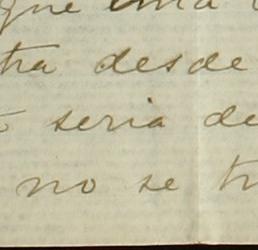 que una
tra desde
seria de
no se tr